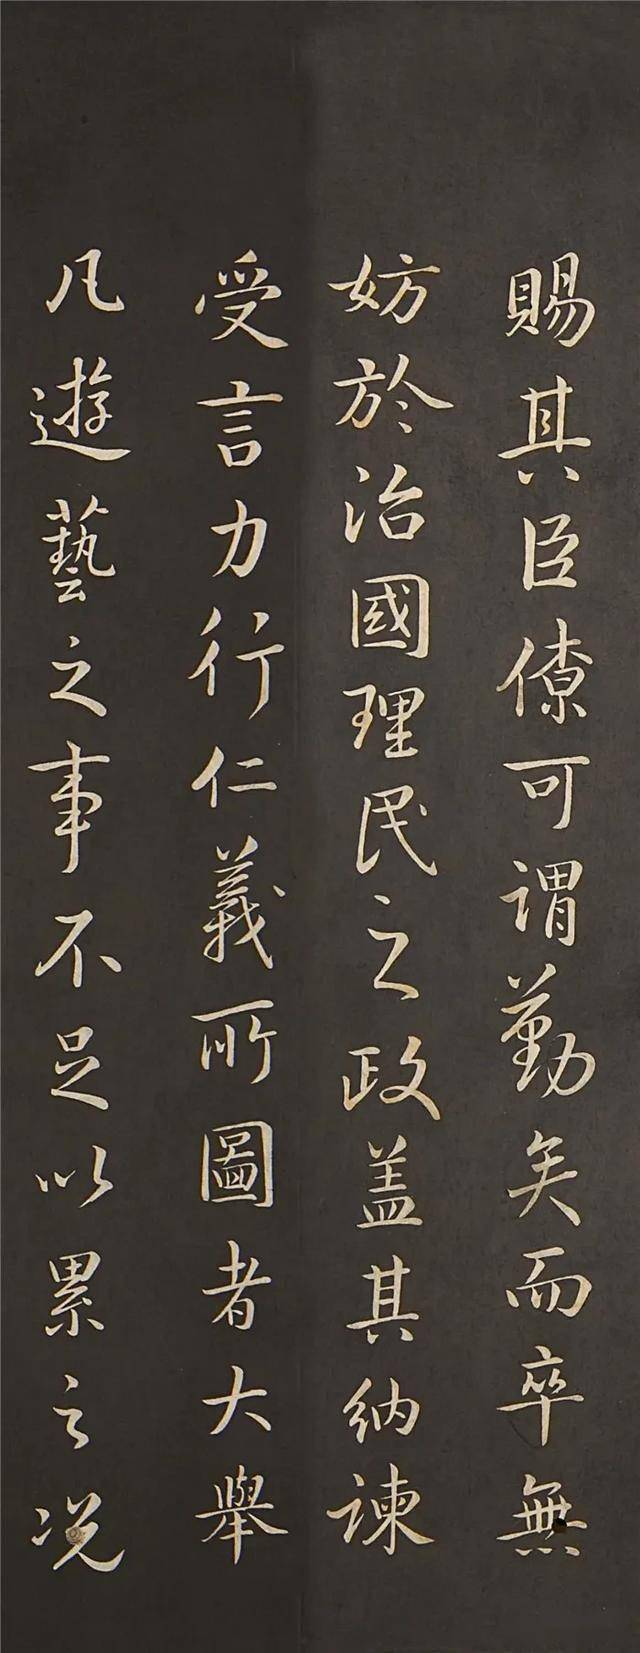 賜其臣僚可謂勤矣而卒無
妨於治國理民之政盖其納諫
受言力行仁義所圖者大舉
凡遊藝之事不足以累之况